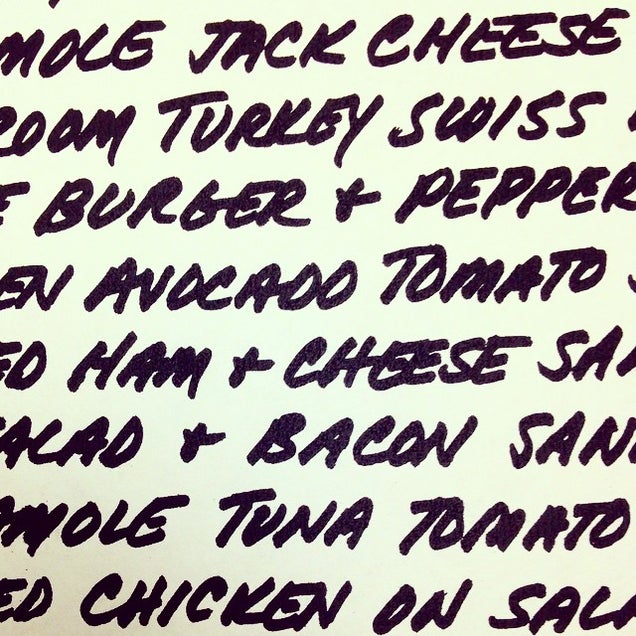 MOLE JACK CHEESE
ROOM TURKEY SWISS
E BURGER + PEPPER
EN AVOCADO TOMATO
ED HAM + CHEESE SAN
SALAD + BACON SAND
AMOLE TUNA TOMATO
ED CHICKEN ON SALA